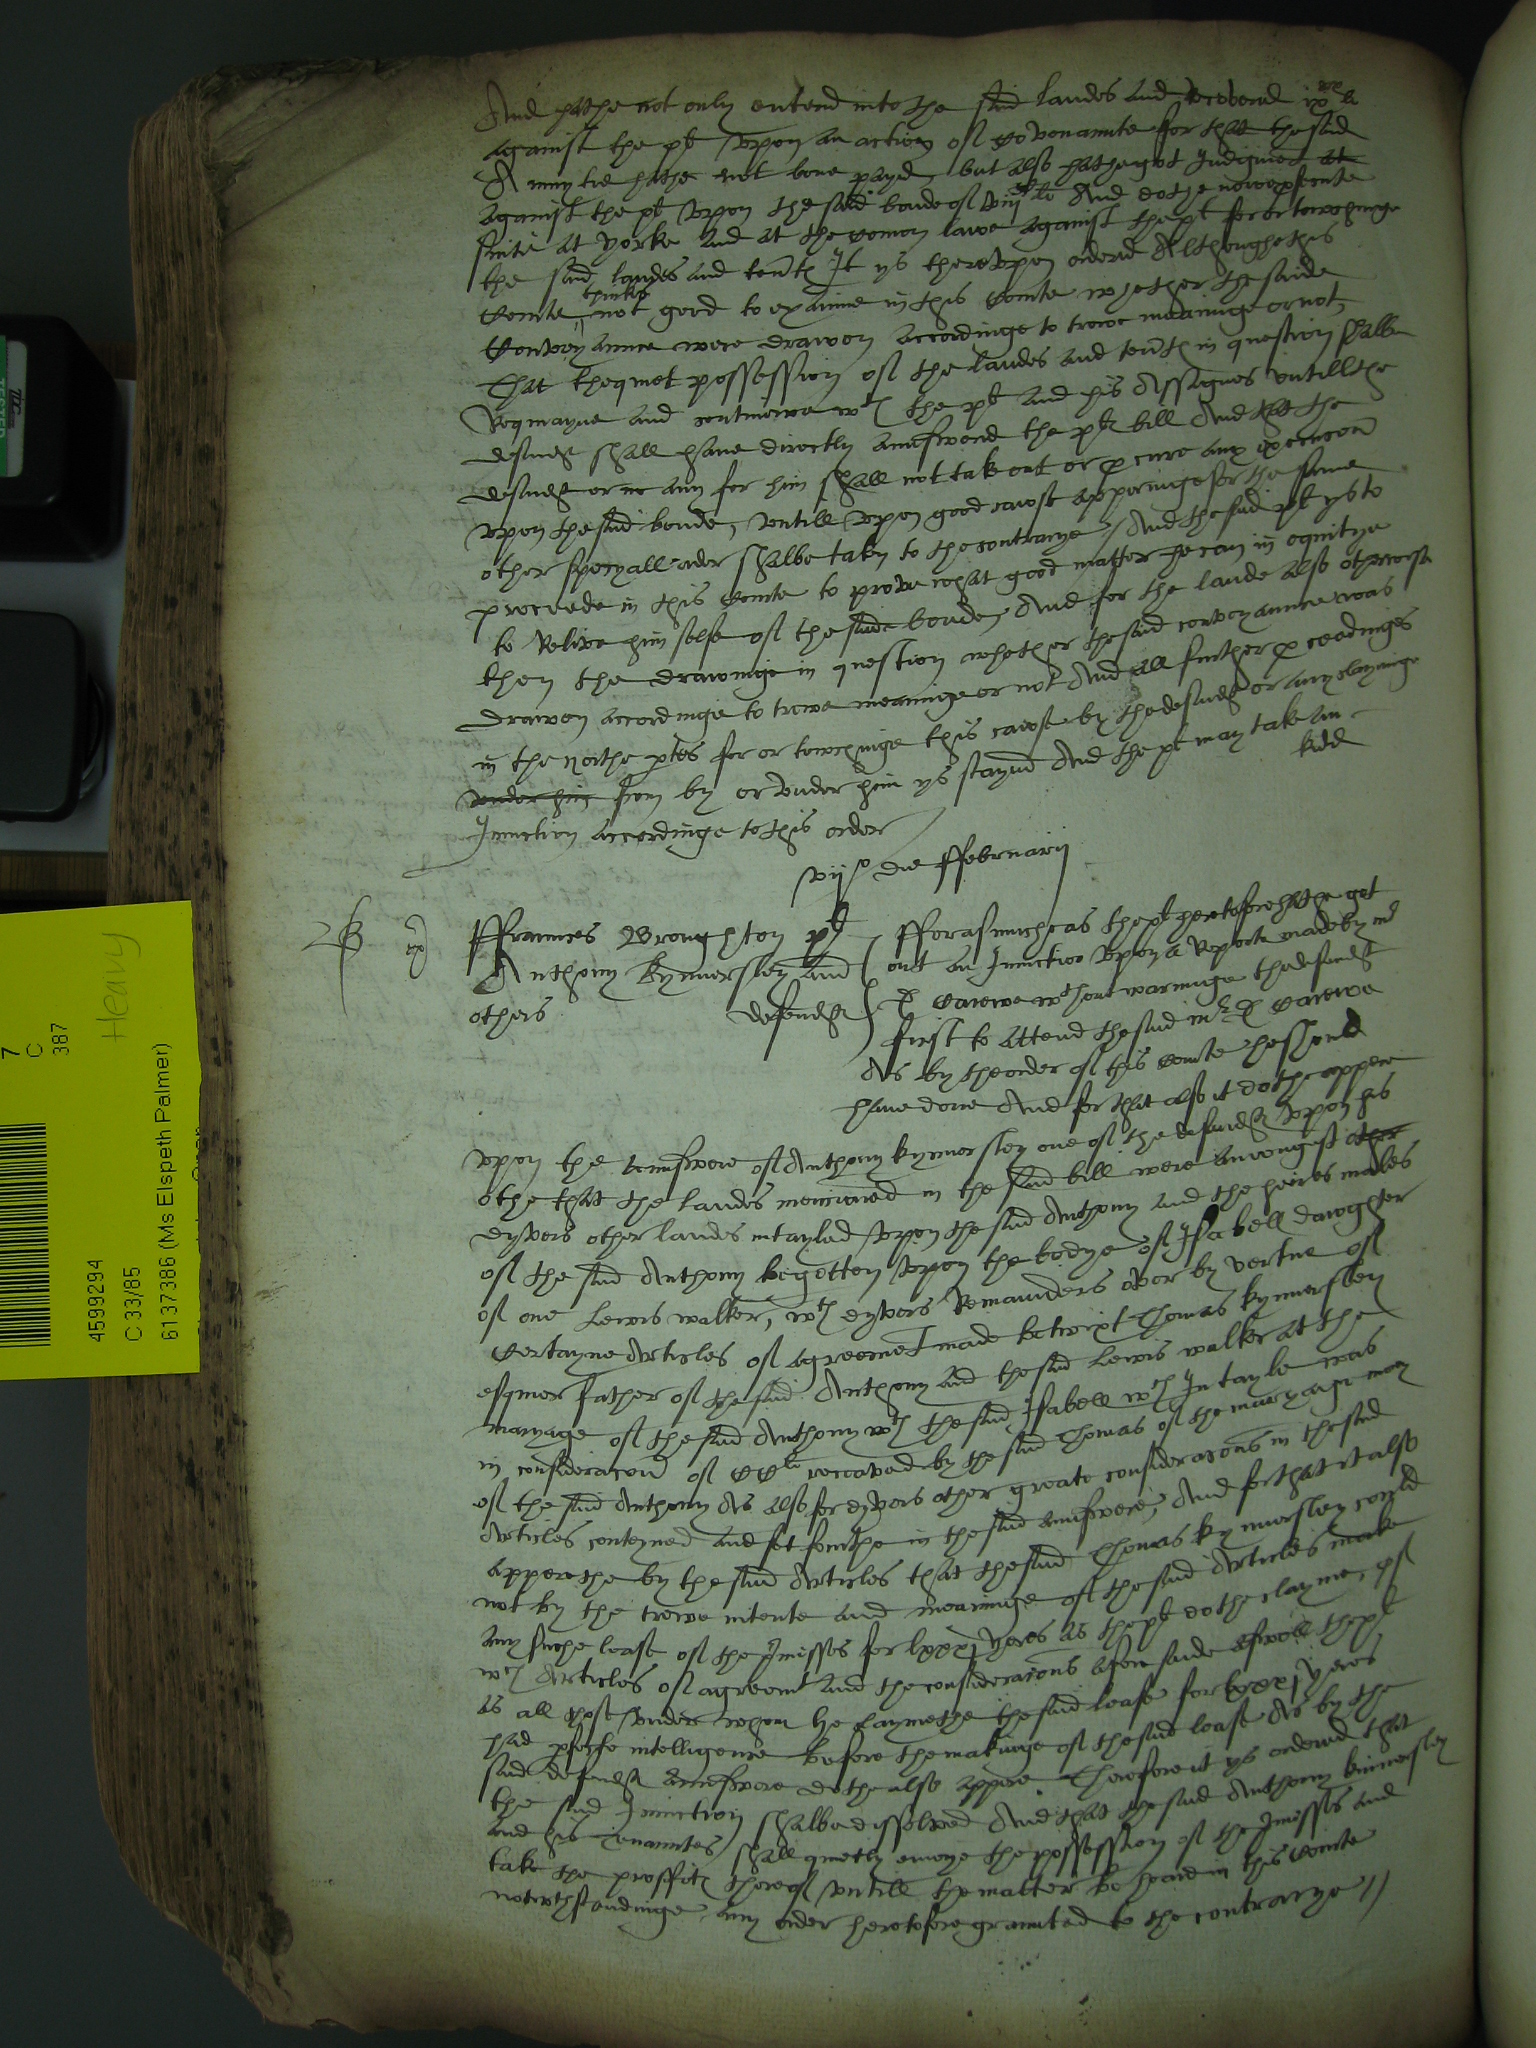 And hathe not only entred into the said landes and recovered ix xx li
against the pl upon an action of Covenaunte for that the said
Annuytie hathe not bene payd, but also hathe got Judgment at
against the pl upon the said bonde of viij C li And dothe nowe psecute
suite at Yorke and at the Comon lawe against the pl for or towchinge
the said landes and tents It ys thereupon ordered Althoughe this
thinkes
Courte not good to examine in this Courte whether the saide
Conveyaunce were drawen accordinge to trewe meaninge or not,
That the quiet possession of the landes and tents in question shalbe
Remayne and contineue wth the pl and his Assignes untill the
defendt shall have directly aunswered the pls bill And that the
defendt or ne any for him shall not take out or pcure any execucon
upon the said bonde, untill upon good cawse apperinge for the same
other specyall order shalbe taken to the contrarye / And the said pl ys to
proceede in this Courte to prove what good matter he can in equitye
to Relive him selfe of the saide bonde, And for the lande also otherwise
then the drawinge in question whether the said conveyaunce was
drawen accordinge to trewe meaninge or not And all further pceedinges
in the Northe ptes for or towchinge this cawse by the defendt or any clayminge
under him from by or under him ys stayed And the pl may take an
Injunction accordinge to this order
vij o die Februarij
Ffraunces Wroughton pl
Anthony kynnersley and
others defendts
Fforasmuche as the pl heretofore hathe got
out an Injunction upon a Reporte made by mr
D Carewe wthout warninge the defendt
first to attend the said mr D Carewe
As by the order of this Courte he should
have done And for that also it dothe appere
upon the Aunswere of Anthony kynnersley one of the defendts upon his
othe that the landes mencioned in the said bill were amongest other
dyvers other landes intayled upon the said Anthony and the heires males
of the said Anthony begotten upon the bodye of Isabell dawghter
of one Lewis walker, wth dyvers Remainders over by vertue of
Certayne Articles of agreemet made betwixt Thomas kynnersley
esquier father of the said Anthony and the said Lewis walker at the
maryage of the said Anthony wth the said Isabell wch Intayle was
in consideracon of CC li receaved by the said Thomas of the maryage mony
of the said Anthony As also for dyvers other greate consideracons in the said
Articles conteyned and set fourthe in the said aunswere, And for that it also
apperethe by the said Articles that the said Thomas kynnersley could
not by the trewe intente and meaninge of the said Articles make
any suche lease of the pmisses for lxxxj yeres as the pl dothe clayme, of
wch Articles of agreemt and the consideracons aforesaide aswell the pl
as all those under whom he claymethe the said lease for lxxxj yeres
had pfecte intelligence before the makinge of the said lease As by the
said defendts Aunswere dothe also appere Therefore it ys ordered that
the said Injunction shalbe dissolved And that the said Anthony kinnersley
and his tenauntes shall quietly enioye the possession of the pmisses and
take the proffits thereof untill the matter be heard in this Courte
notwthstandinge any order heretofore graunted to the contrarye //
7
C
387
Heavy
4599294
C 33/85
6137386 (Ms Elspeth Palmer)
TESTED